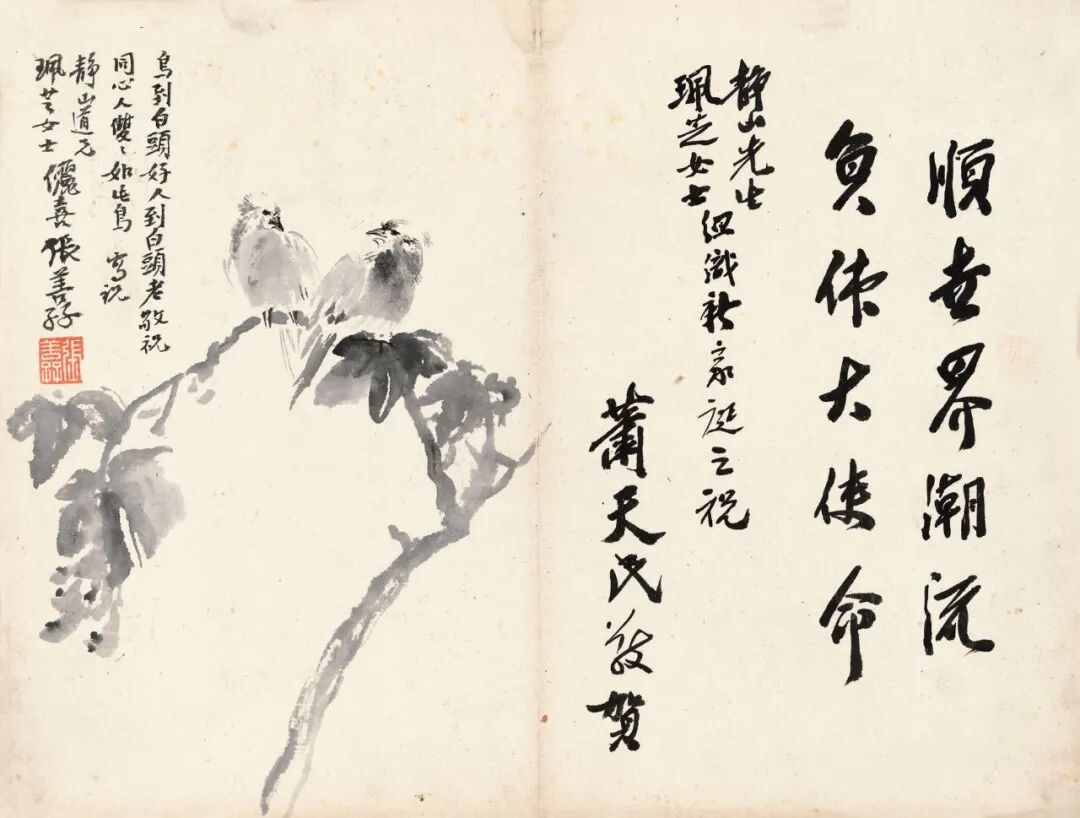 順世界潮流
負偉大使命
靜山先生
珮芝女士組織新家庭之祝
蕭天民敬賀
鳥到白頭好人到白頭老敬祝
同心人雙〻如此鳥 寫祝
靜山道兄
珮芝女士 儷喜 張善孖
張善孖